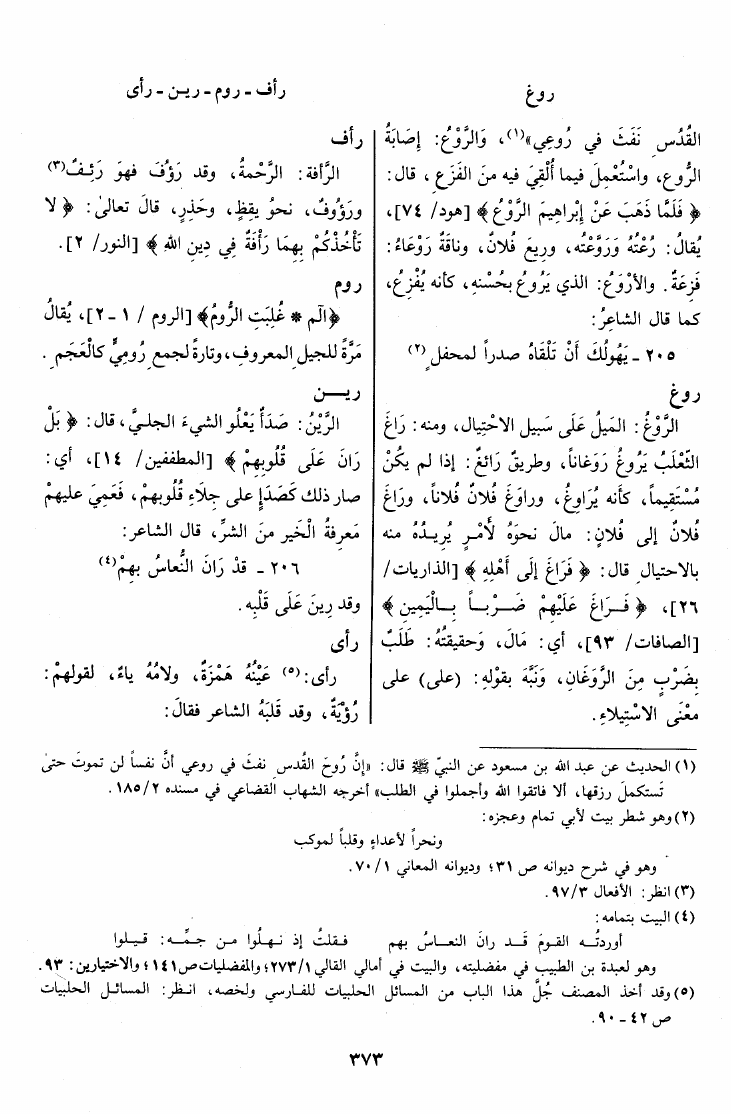 روغ
رأف - روم - رين - رأى
القُدُسِ نَفَثَ في رُوعِي»(١)، وَالرَّوْعُ: إصَابَةُ
الرُّوعِ، واسْتُعْمِلَ فيما أُلْقِيَ فيه منَ الفَزَعِ، قال:
﴿ فَلَمَّا ذَهَبَ عَنْ إبْراهِيمَ الرَّوْعُ ﴾ [هود/ ٧٤]،
يُقالُ: رُعْتُهُ وَرَوَّعْتُه، ورِيعَ فُلانٌ، وناقَةٌ رَوْعَاءُ:
فَزِعَةٌ. والأرْوَعُ: الذي يَرُوعُ بحُسْنِهِ، كأنه يُفْزِعُ،
كما قال الشاعِرُ:
٢٠٥ - يَهُولُكَ أَنْ تَلْقَاهُ صدراً لمحفلٍ(٢)
روغ
الرَّوْغُ: المَيلُ عَلَى سَبيلِ الاحْتِيالِ، ومنه: رَاغَ
الثَّعْلَبُ يَرُوغُ رَوَغاناً، وطريقٌ رائغٌ: إذا لم يكُنْ
مُسْتَقِيماً، كأنه يُرَاوِغُ، وراوَغَ فُلانٌ فُلاناً، ورَاغَ
فُلانٌ إلى فُلانٍ: مالَ نحوَهُ لأَمْرٍ يُرِيدُهُ منه
بالاحتيالِ قال: ﴿ فَرَاغَ إلَى أَهْلِهِ ﴾ [الذاريات/
٢٦]، ﴿ فَراغَ عَلَيْهِمْ ضَرْباً بِالْيَمِينِ ﴾
[الصافات/ ٩٣]، أي: مَالَ، وَحَقيقتُهُ: طَلَبٌ
بِضَرْبٍ مِنَ الرَّوَغَانِ، وَنَبَّهَ بقولِهِ: (على) على
مَعْنَى الاسْتِيلاءِ.
رأف
الرَّأفة: الرَّحْمةُ، وقد رَؤُفَ فهوَ رَئِفٌ(٣)
ورَؤُوفٌ، نحوُ يقِظٍ، وحَذِرٍ، قالَ تعالىٰ: ﴿ لا
تَأْخُذْكُمْ بِهِمَا رَأْفَةٌ فِي دِينِ اللهِ ﴾ [النور/ ٢].
روم
﴿الٓم * غُلِبَتِ الرُّومُ﴾ [الروم / ١ - ٢]، يُقالُ
مَرَّةً للجيلِ المعروفِ، وتارةً لجمعِ رُومِيٍّ كالْعَجَمِ.
ريـــن
الرَّيْنُ: صَدَأٌ يَعْلُو الشيءَ الجليَّ، قال: ﴿ بَلْ
رَانَ عَلَى قُلُوبِهِمْ ﴾ [المطففين/ ١٤]، أي:
صار ذلك كَصَدَإٍ على جِلَاءِ قُلُوبهمْ، فَعَمِيَ عليهمْ
مَعرِفةُ الْخَيرِ منَ الشرِّ، قال الشاعر:
٢٠٦ - قدْ رَانَ النُّعاسُ بهِمْ(٤)
وقد رِينَ عَلَى قَلْبِه.
رأى
رأى:(٥) عَيْنُهُ هَمْزَةٌ، ولامُهُ ياءٌ، لقولهمْ:
رُؤْيَةٌ، وقد قَلَبَهُ الشاعر فقالَ:
(١) الحديث عن عبد الله بن مسعود عن النبيّ ﷺ قال: «إنَّ رُوحَ القُدس نفثَ في روعي أنَّ نفساً لن تموتَ حتىٰ
تَستكملَ رزقها، ألا فاتقوا الله وأجملوا في الطلب» أخرجه الشهاب القضاعي في مسنده ١٨٥/٢.
(٢) وهو شطر بيت لأبي تمام وعجزه:
ونحراً لأعداءٍ وقلباً لموكب
وهو في شرح ديوانه ص ٣١؛ وديوانه المعاني ٧٠/١.
(٣) انظر: الأفعال ٩٧/٣.
(٤) البيت بتمامه:
أوردتُـه القومَ قَـد رانَ النعـاسُ بهم     فقلتُ إذ نهـلُوا مـن جمِّـه: قيـلوا
وهو لعبدة بن الطبيب في مفضليته، والبيت في أمالي القالي ٢٧٣/١؛ والمفضليات ص ١٤١؛ والاختيارين: ٩٣.
(٥) وقد أخذ المصنف جُلَّ هذا الباب من المسائل الحلبيات للفارسي ولخصه، انظر: المسائل الحلبيات
ص ٤٢ - ٩٠.
٣٧٣